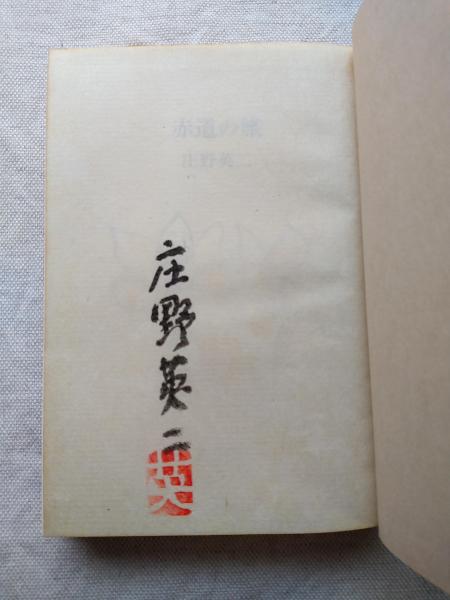 赤道の旅
庄野英二
庄野英二
英